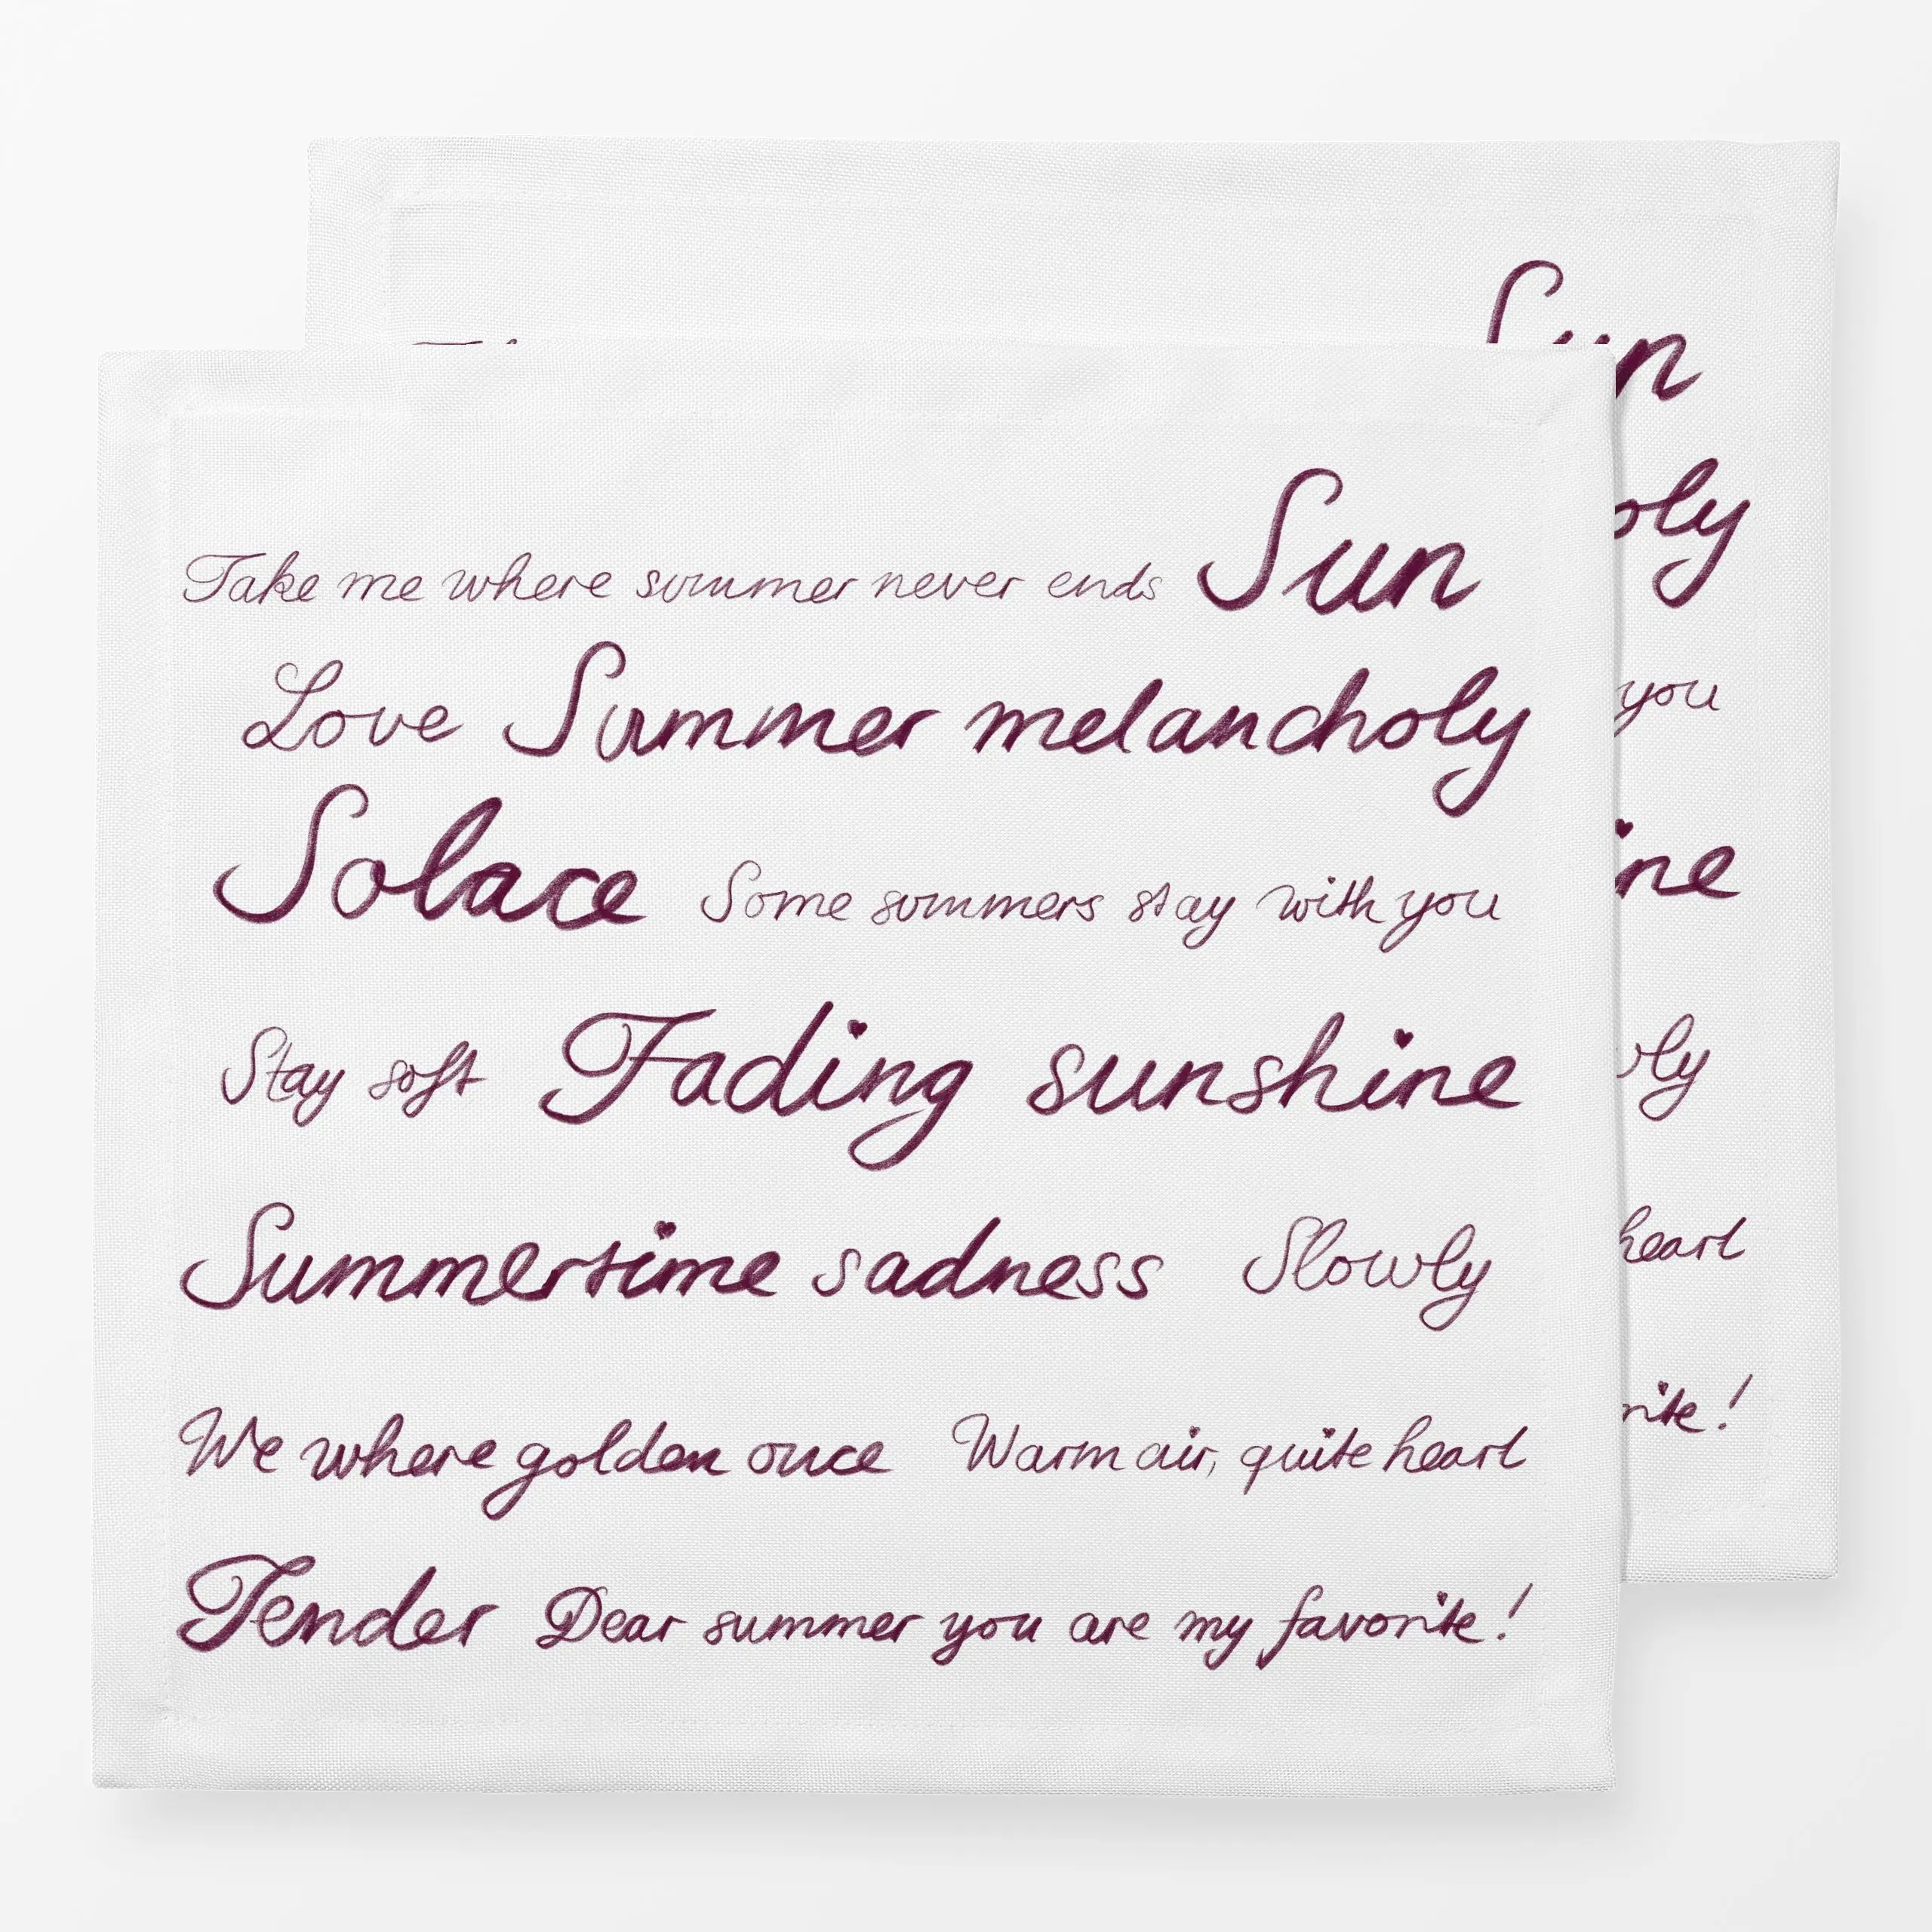 Take me where summer never ends Sun
Love Summer melancholy
Solace Some summers stay with you
Stay soft Fading sunshine
Summertime sadness Slowly
We where golden once Warm air, quite heart
Tender Dear summer you are my favorite!
Sun
you
heart